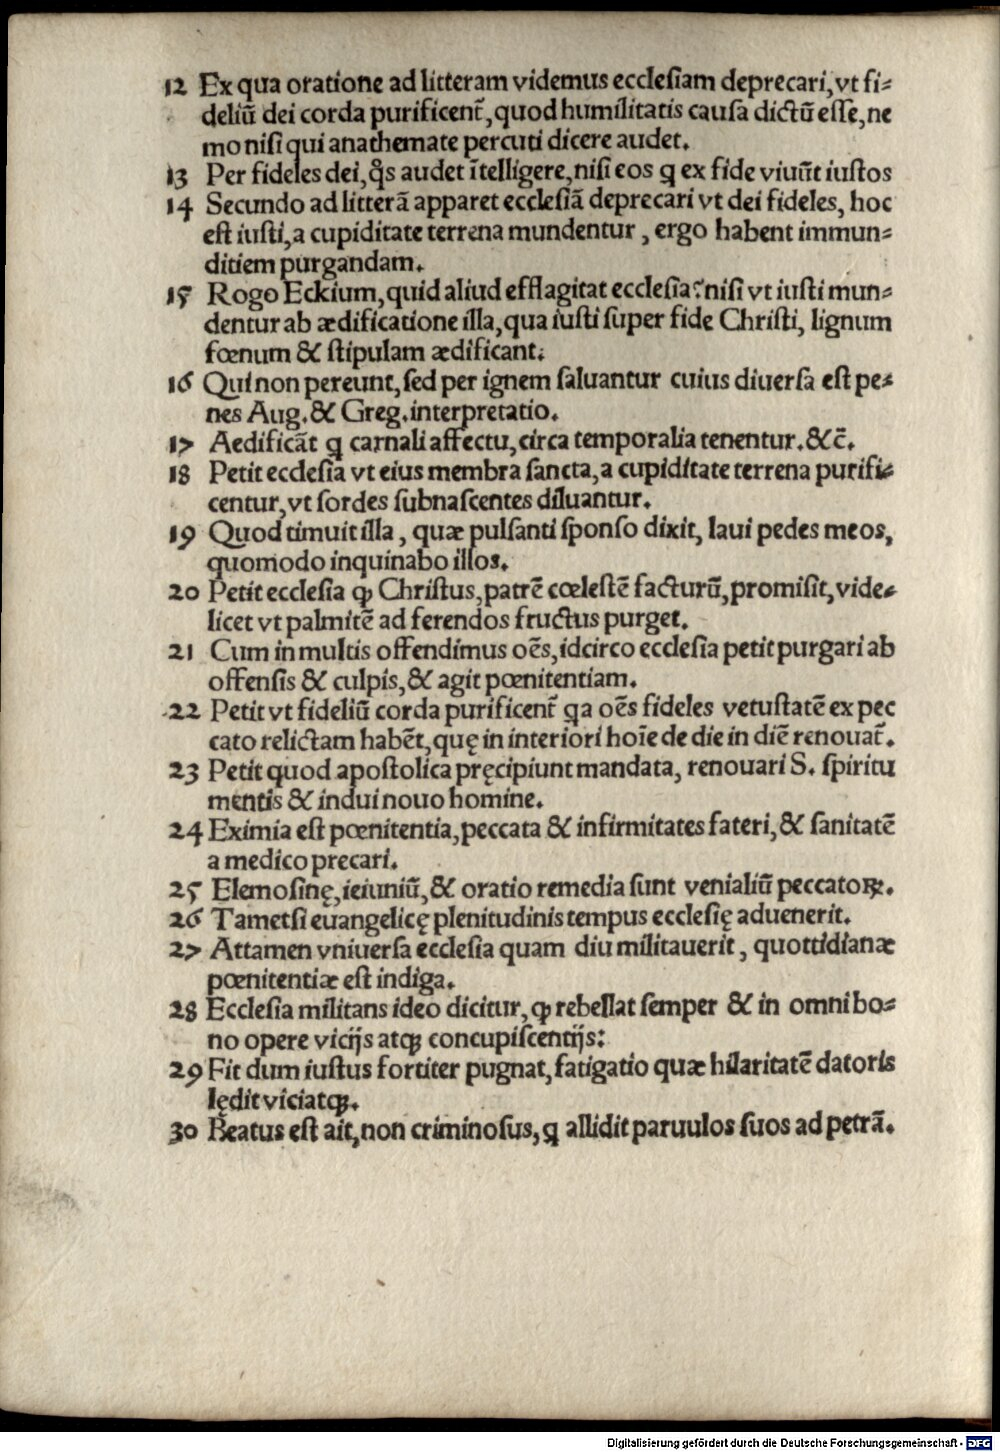 12 Ex qua oratione ad litteram videmus ecclesiam deprecari, vt fi⸗
deliū dei corda purificent̃, quod humilitatis causa dictū esse, ne
mo nisi qui anathemate percuti dicere audet.
13 Per fideles dei, q̃s audet ĩtelligere, nisi eos ꝗ ex fide viuũt iustos
14 Secundo ad litterã apparet ecclesiã deprecari vt dei fideles, hoc
est iusti, a cupiditate terrena mundentur, ergo habent immun⸗
ditiem purgandam.
15 Rogo Eckium, quid aliud efflagitat ecclesia? nisi vt iusti mun⸗
dentur ab ædificatione illa, qua iusti super fide Christi, lignum
fœnum & stipulam ædificant.
16 Qui non pereunt, sed per ignem saluantur cuius diuersa est pe⸗
nes Aug. & Greg. interpretatio.
17 Aedificãt ꝗ carnali affectu, circa temporalia tenentur. &c̃.
18 Petit ecclesia vt eius membra sancta, a cupiditate terrena purifi⸗
centur, vt sordes subnascentes diluantur.
19 Quod timuit illa, quæ pulsanti sponso dixit, laui pedes meos,
quomodo inquinabo illos.
20 Petit ecclesia ꝙ Christus, patrẽ cœlestẽ facturũ, promisit, vide⸗
licet vt palmitẽ ad ferendos fructus purget.
21 Cum in multis offendimus oẽs, idcirco ecclesia petit purgari ab
offensis & culpis, & agit pœnitentiam.
22 Petit vt fideliũ corda purificent̃ ꝗa oẽs fideles vetustatẽ ex pec
cato relictam habẽt, quę in interiori hoĩe de die in diẽ renouat̃.
23 Petit quod apostolica pręcipiunt mandata, renouari S. spiritu
mentis & indui nouo homine.
24 Eximia est pœnitentia, peccata & infirmitates fateri, & sanitatẽ
a medico precari.
25 Elemosinę, ieiuniũ, & oratio remedia sunt venialiũ peccatoꝝ.
26 Tametsi euangelicę plenitudinis tempus ecclesię aduenerit.
27 Attamen vniuersa ecclesia quam diu militauerit, quottidianæ
pœnitentiæ est indiga.
28 Ecclesia militans ideo dicitur, ꝙ rebellat semper & in omni bo⸗
no opere vicijs atqꝫ concupiscentijs:
29 Fit dum iustus fortiter pugnat, fatigatio quæ hilaritatẽ datoris
lędit viciatqꝫ.
30 Beatus est ait, non criminosus, ꝗ allidit paruulos suos ad petrã.
Digitalisierung gefördert durch die Deutsche Forschungsgemeinschaft - DFG